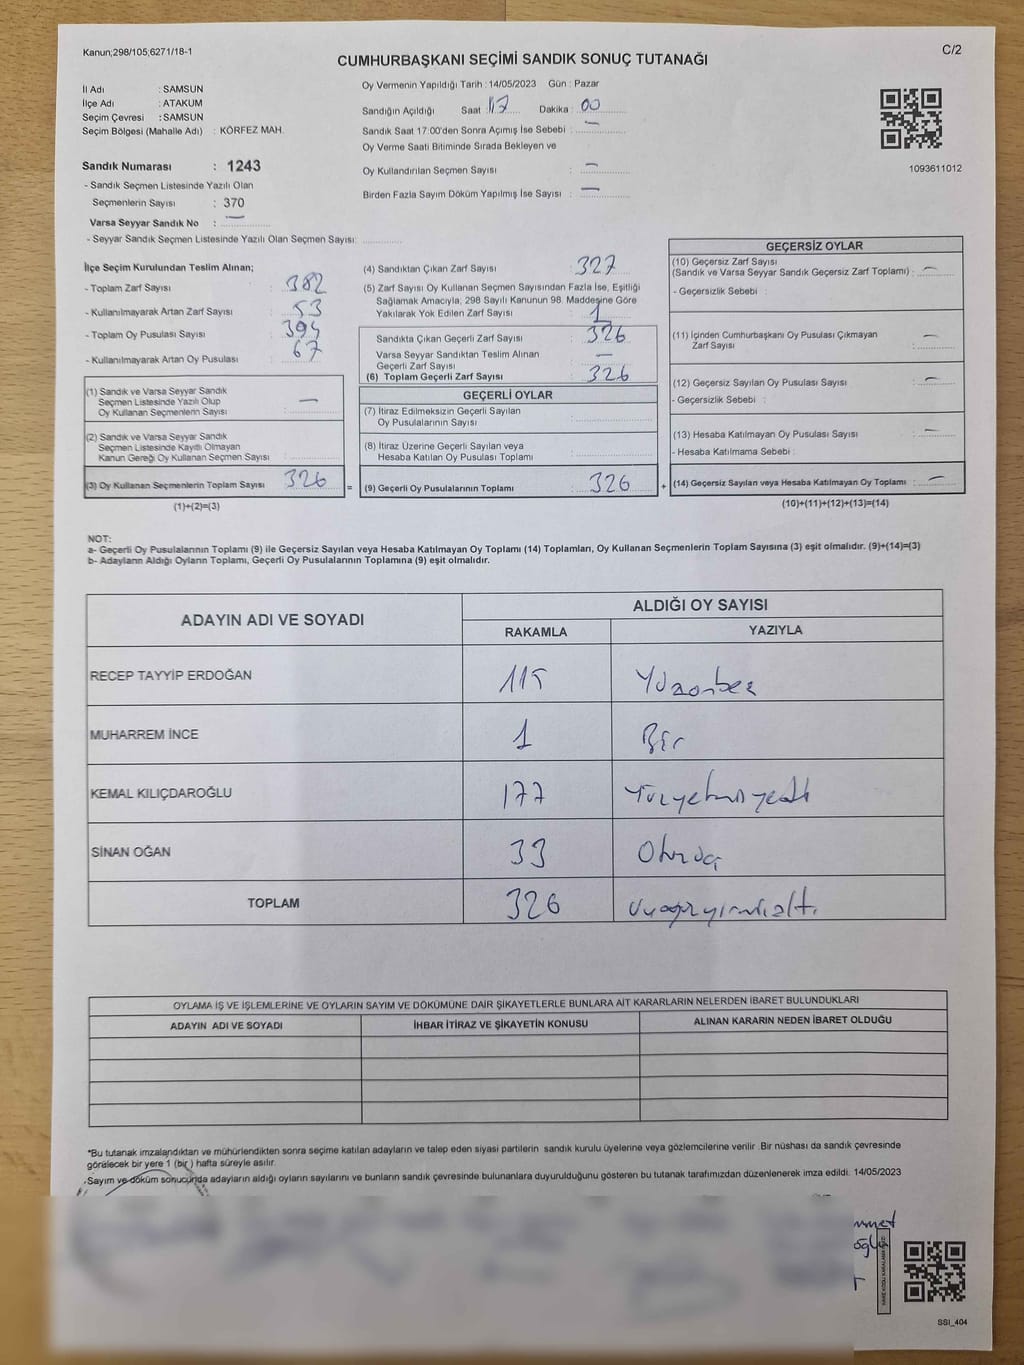 Kanun;298/105,6271/18-1
C/2
CUMHURBAŞKANI SEÇİMİ SANDIK SONUÇ TUTANAĞI
İl Adı : SAMSUN
İlçe Adı : ATAKUM
Seçim Çevresi : SAMSUN
Seçim Bölgesi (Mahalle Adı) : KÖRFEZ MAH.
Sandık Numarası : 1243
- Sandık Seçmen Listesinde Yazılı Olan
Seçmenlerin Sayısı : 370
Varsa Seyyar Sandık No : —
- Seyyar Sandık Seçmen Listesinde Yazılı Olan Seçmen Sayısı:
Oy Vermenin Yapıldığı Tarih : 14/05/2023 Gün : Pazar
Sandığın Açıldığı Saat : 17 Dakika : 00
Sandık Saat 17:00'den Sonra Açımış İse Sebebi : —
Oy Verme Saati Bitiminde Sırada Bekleyen ve
Oy Kullandırılan Seçmen Sayısı : —
Birden Fazla Sayım Döküm Yapılmış İse Sayısı : —
1093611012
İlçe Seçim Kurulundan Teslim Alınan;
- Toplam Zarf Sayısı : 382
- Kullanılmayarak Artan Zarf Sayısı : 53
- Toplam Oy Pusulası Sayısı : 394
- Kullanılmayarak Artan Oy Pusulası : 67
(1) Sandık ve Varsa Seyyar Sandık
Seçmen Listesinde Yazılı Olup
Oy Kullanan Seçmenlerin Sayısı : —
(2) Sandık ve Varsa Seyyar Sandık
Seçmen Listesinde Kayıtlı Olmayan
Kanun Gereği Oy Kullanan Seçmen Sayısı :
(3) Oy Kullanan Seçmenlerin Toplam Sayısı : 326
(1)+(2)=(3)
=
(4) Sandıktan Çıkan Zarf Sayısı : 327
(5) Zarf Sayısı Oy Kullanan Seçmen Sayısından Fazla İse, Eşitliği
Sağlamak Amacıyla; 298 Sayılı Kanunun 98. Maddesine Göre
Yakılarak Yok Edilen Zarf Sayısı : 1
Sandıkta Çıkan Geçerli Zarf Sayısı : 326
Varsa Seyyar Sandıktan Teslim Alınan
Geçerli Zarf Sayısı : —
(6) Toplam Geçerli Zarf Sayısı : 326
GEÇERLİ OYLAR
(7) İtiraz Edilmeksizin Geçerli Sayılan
Oy Pusulalarının Sayısı :
(8) İtiraz Üzerine Geçerli Sayılan veya
Hesaba Katılan Oy Pusulası Toplamı :
(9) Geçerli Oy Pusulalarının Toplamı : 326
+
GEÇERSİZ OYLAR
(10) Geçersiz Zarf Sayısı
(Sandık ve Varsa Seyyar Sandık Geçersiz Zarf Toplamı) : —
- Geçersizlik Sebebi :
(11) İçinden Cumhurbaşkanı Oy Pusulası Çıkmayan
Zarf Sayısı : —
(12) Geçersiz Sayılan Oy Pusulası Sayısı : —
- Geçersizlik Sebebi :
(13) Hesaba Katılmayan Oy Pusulası Sayısı : —
- Hesaba Katılmama Sebebi :
(14) Geçersiz Sayılan veya Hesaba Katılmayan Oy Toplamı : —
(10)+(11)+(12)+(13)=(14)
NOT:
a- Geçerli Oy Pusulalarının Toplamı (9) ile Geçersiz Sayılan veya Hesaba Katılmayan Oy Toplamı (14) Toplamları, Oy Kullanan Seçmenlerin Toplam Sayısına (3) eşit olmalıdır. (9)+(14)=(3)
b- Adayların Aldığı Oyların Toplamı, Geçerli Oy Pusulalarının Toplamına (9) eşit olmalıdır.
ADAYIN ADI VE SOYADI ALDIĞI OY SAYISI
RAKAMLA YAZIYLA
RECEP TAYYİP ERDOĞAN 115 Yüzonbeş
MUHARREM İNCE 1 Bir
KEMAL KILIÇDAROĞLU 177 Yüzyetmişyedi
SİNAN OĞAN 33 Otuzüç
TOPLAM 326 üçyüzyirmialtı
OYLAMA İŞ VE İŞLEMLERİNE VE OYLARIN SAYIM VE DÖKÜMÜNE DAİR ŞİKAYETLERLE BUNLARA AİT KARARLARIN NELERDEN İBARET BULUNDUKLARI
ADAYIN ADI VE SOYADI İHBAR İTİRAZ VE ŞİKAYETİN KONUSU ALINAN KARARIN NEDEN İBARET OLDUĞU
*Bu tutanak imzalandıktan ve mühürlendikten sonra seçime katılan adayların ve talep eden siyasi partilerin sandık kurulu üyelerine veya gözlemcilerine verilir. Bir nüshası da sandık çevresinde
görülecek bir yere 1 (bir) hafta süreyle asılır.
Sayım ve döküm sonucunda adayların aldığı oyların sayılarını ve bunların sandık çevresinde bulunanlara duyurulduğunu gösteren bu tutanak tarafımızdan düzenlenerek imza edildi. 14/05/2023
SSI_404